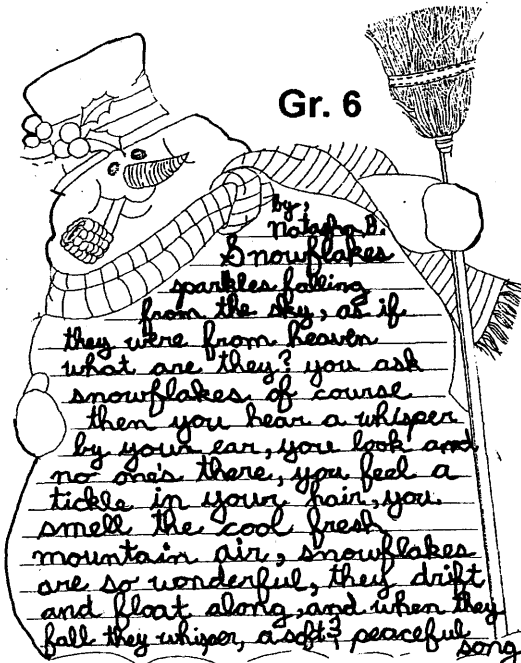 Gr. 6
by,
Natasha B.
Snowflakes
sparkles falling
from the sky, as if
they were from heaven
what are they? you ask
snowflakes of course
then you hear a whisper
by your ear, you look and
no one's there, you feel a
tickle in your hair, you
smell the cool fresh
mountain air, snowflakes
are so wonderful, they drift
and float along, and when they
fall they whisper, a soft & peaceful
song